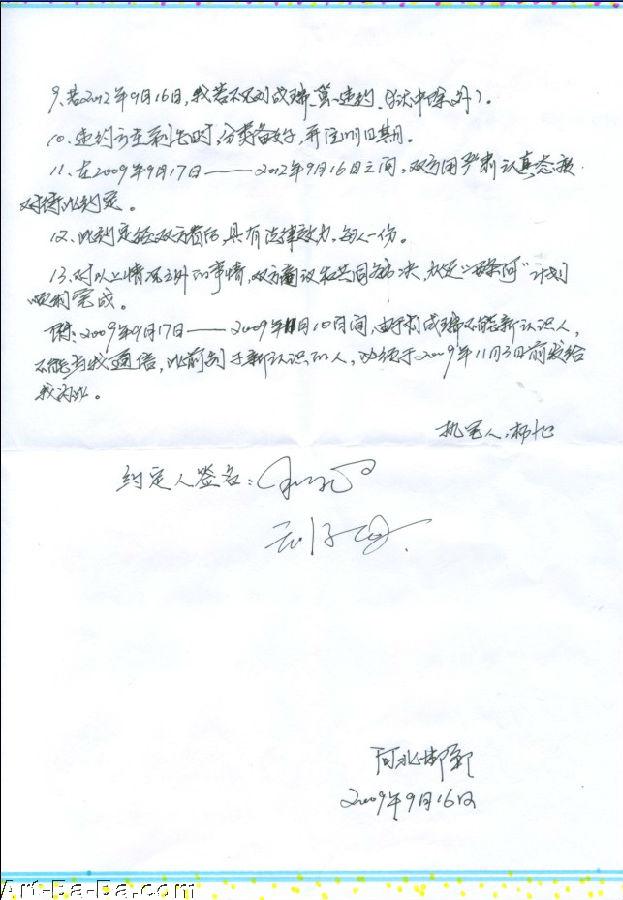 9.若2012年9月16日,我若不见刘成瑞,算违约(狱中除外)。
10.违约方在剁指时,分类备好,并注明日期。
11.在2009年9月17日——2012年9月16日之间,双方用严肃认真态度
对待此约定。
12.此约定经双方签后,具有法律效力,每人一份。
13.对以上情况之外的事情,双方商议和共同解决,
顺利完成。
2009年9月17日——2009年11月10日间,由于刘成瑞不能新认识人,
不能与我通信,此前关于新认识的人,必须于2009年11月3日前发给
我为止。
执笔人:杨旭
约定人签名:
河北邯郸
2009年9月16日
Art-Ba-Ba.com